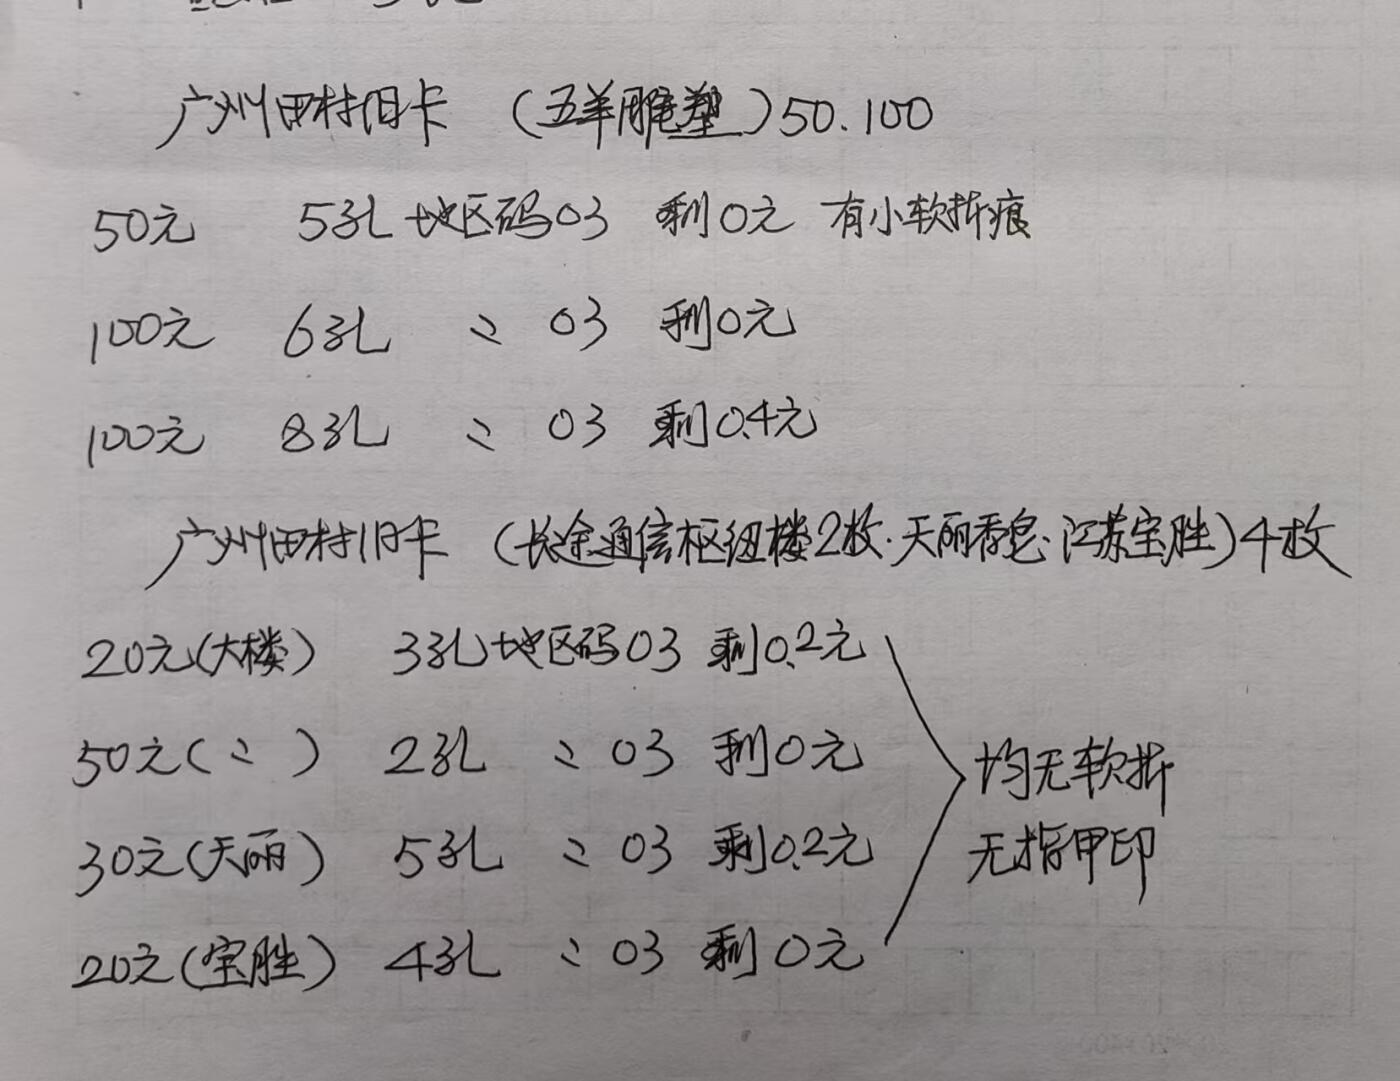 广州田村旧卡 (五羊雕塑) 50.100
50元 5孔 地区码03 剩0元 有小软折痕
100元 6孔 〃 03 剩0元
100元 8孔 〃 03 剩0.4元
广州田村旧卡 (长途通信枢纽楼2枚.天丽香皂.江苏宝胜) 4枚
20元(大楼) 3孔 地区码03 剩0.2元
50元(〃) 2孔 〃 03 剩0元
均无软折
30元(天丽) 5孔 〃 03 剩0.2元
无指甲印
20元(宝胜) 4孔 〃 03 剩0元